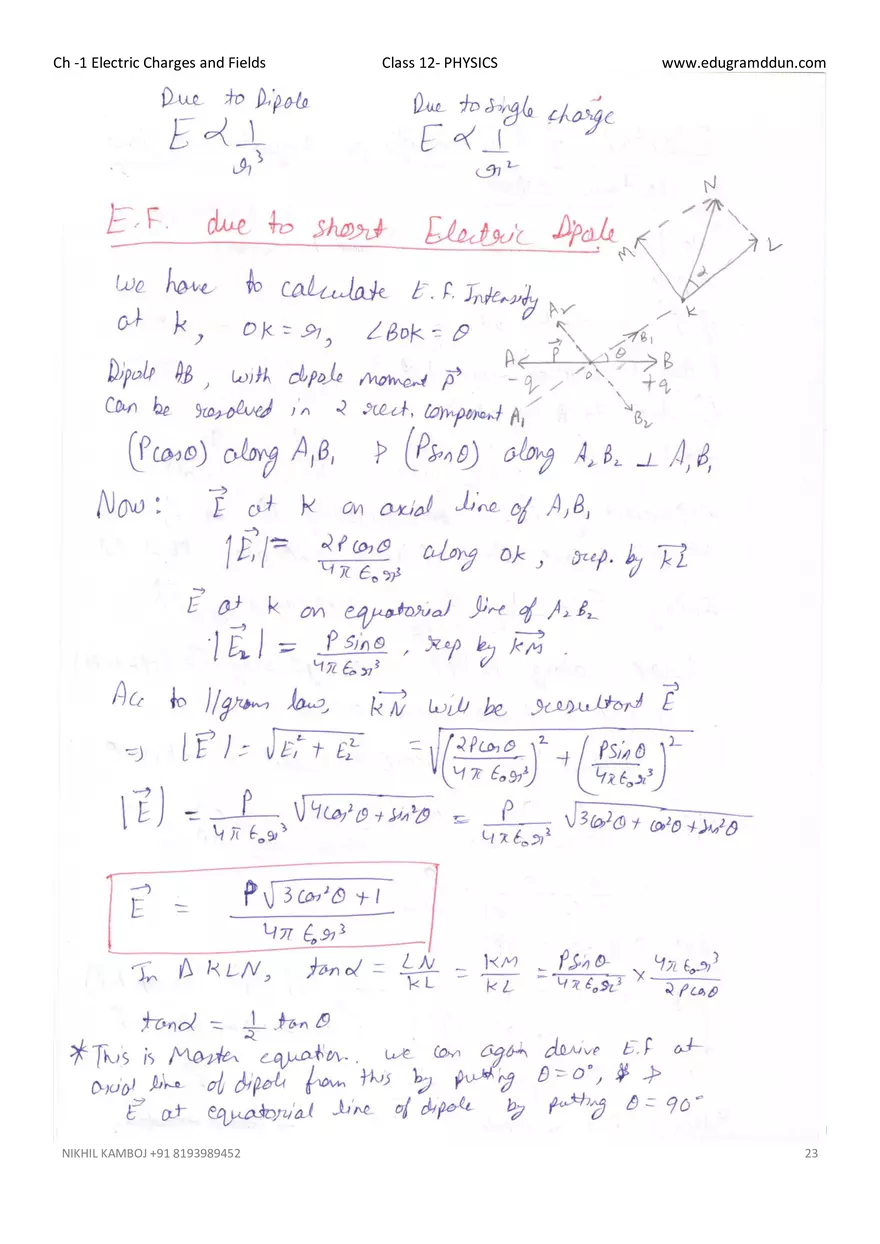 Ch -1 Electric Charges and Fields Class 12- PHYSICS www.edugramddun.com
Due to Dipole Due to single charge
E ∝ 1/r³ E ∝ 1/r²
E.F. due to short Electric Dipole
N
M L
α
K
We have to calculate E.f. Intensity
at k, OK = r, ∠BOK = θ
A₂ B₁
A P⃗ θ B
-q O +q
A₁ B₂
Dipole AB, with dipole moment p⃗
Can be resolved in 2 rect. component
(Pcosθ) along A₁B₁ & (Psinθ) along A₂B₂ ⊥ A₁B₁
Now: E⃗ at K on axial line of A₁B₁
|E⃗₁| = 2Pcosθ/4πε₀r³ along OK, rep. by KL⃗
E⃗ at K on equatorial line of A₂B₂
|E⃗₂| = P sinθ/4πε₀r³, rep by KM⃗.
Acc to //gram law, KN⃗ will be resultant E⃗
⇒ |E⃗| = √(E₁² + E₂²) = √((2Pcosθ/4πε₀r³)² + (PSinθ/4πε₀r³)²)
|E⃗| = P/4πε₀r³ √(4cos²θ + sin²θ) = P/4πε₀r³ √(3cos²θ + cos²θ + sin²θ)
E⃗ = P√(3cos²θ + 1)/4πε₀r³
In Δ KLN, tanα = LN/KL = KM/KL = PSinθ/4πε₀r³ × 4πε₀r³/2Pcosθ
tanα = 1/2 tanθ
*This is Master equation. we can again derive E.f at
axial line of dipole from this by putting θ=0°, &
E⃗ at equatorial line of dipole by putting θ = 90°
NIKHIL KAMBOJ +91 8193989452 23